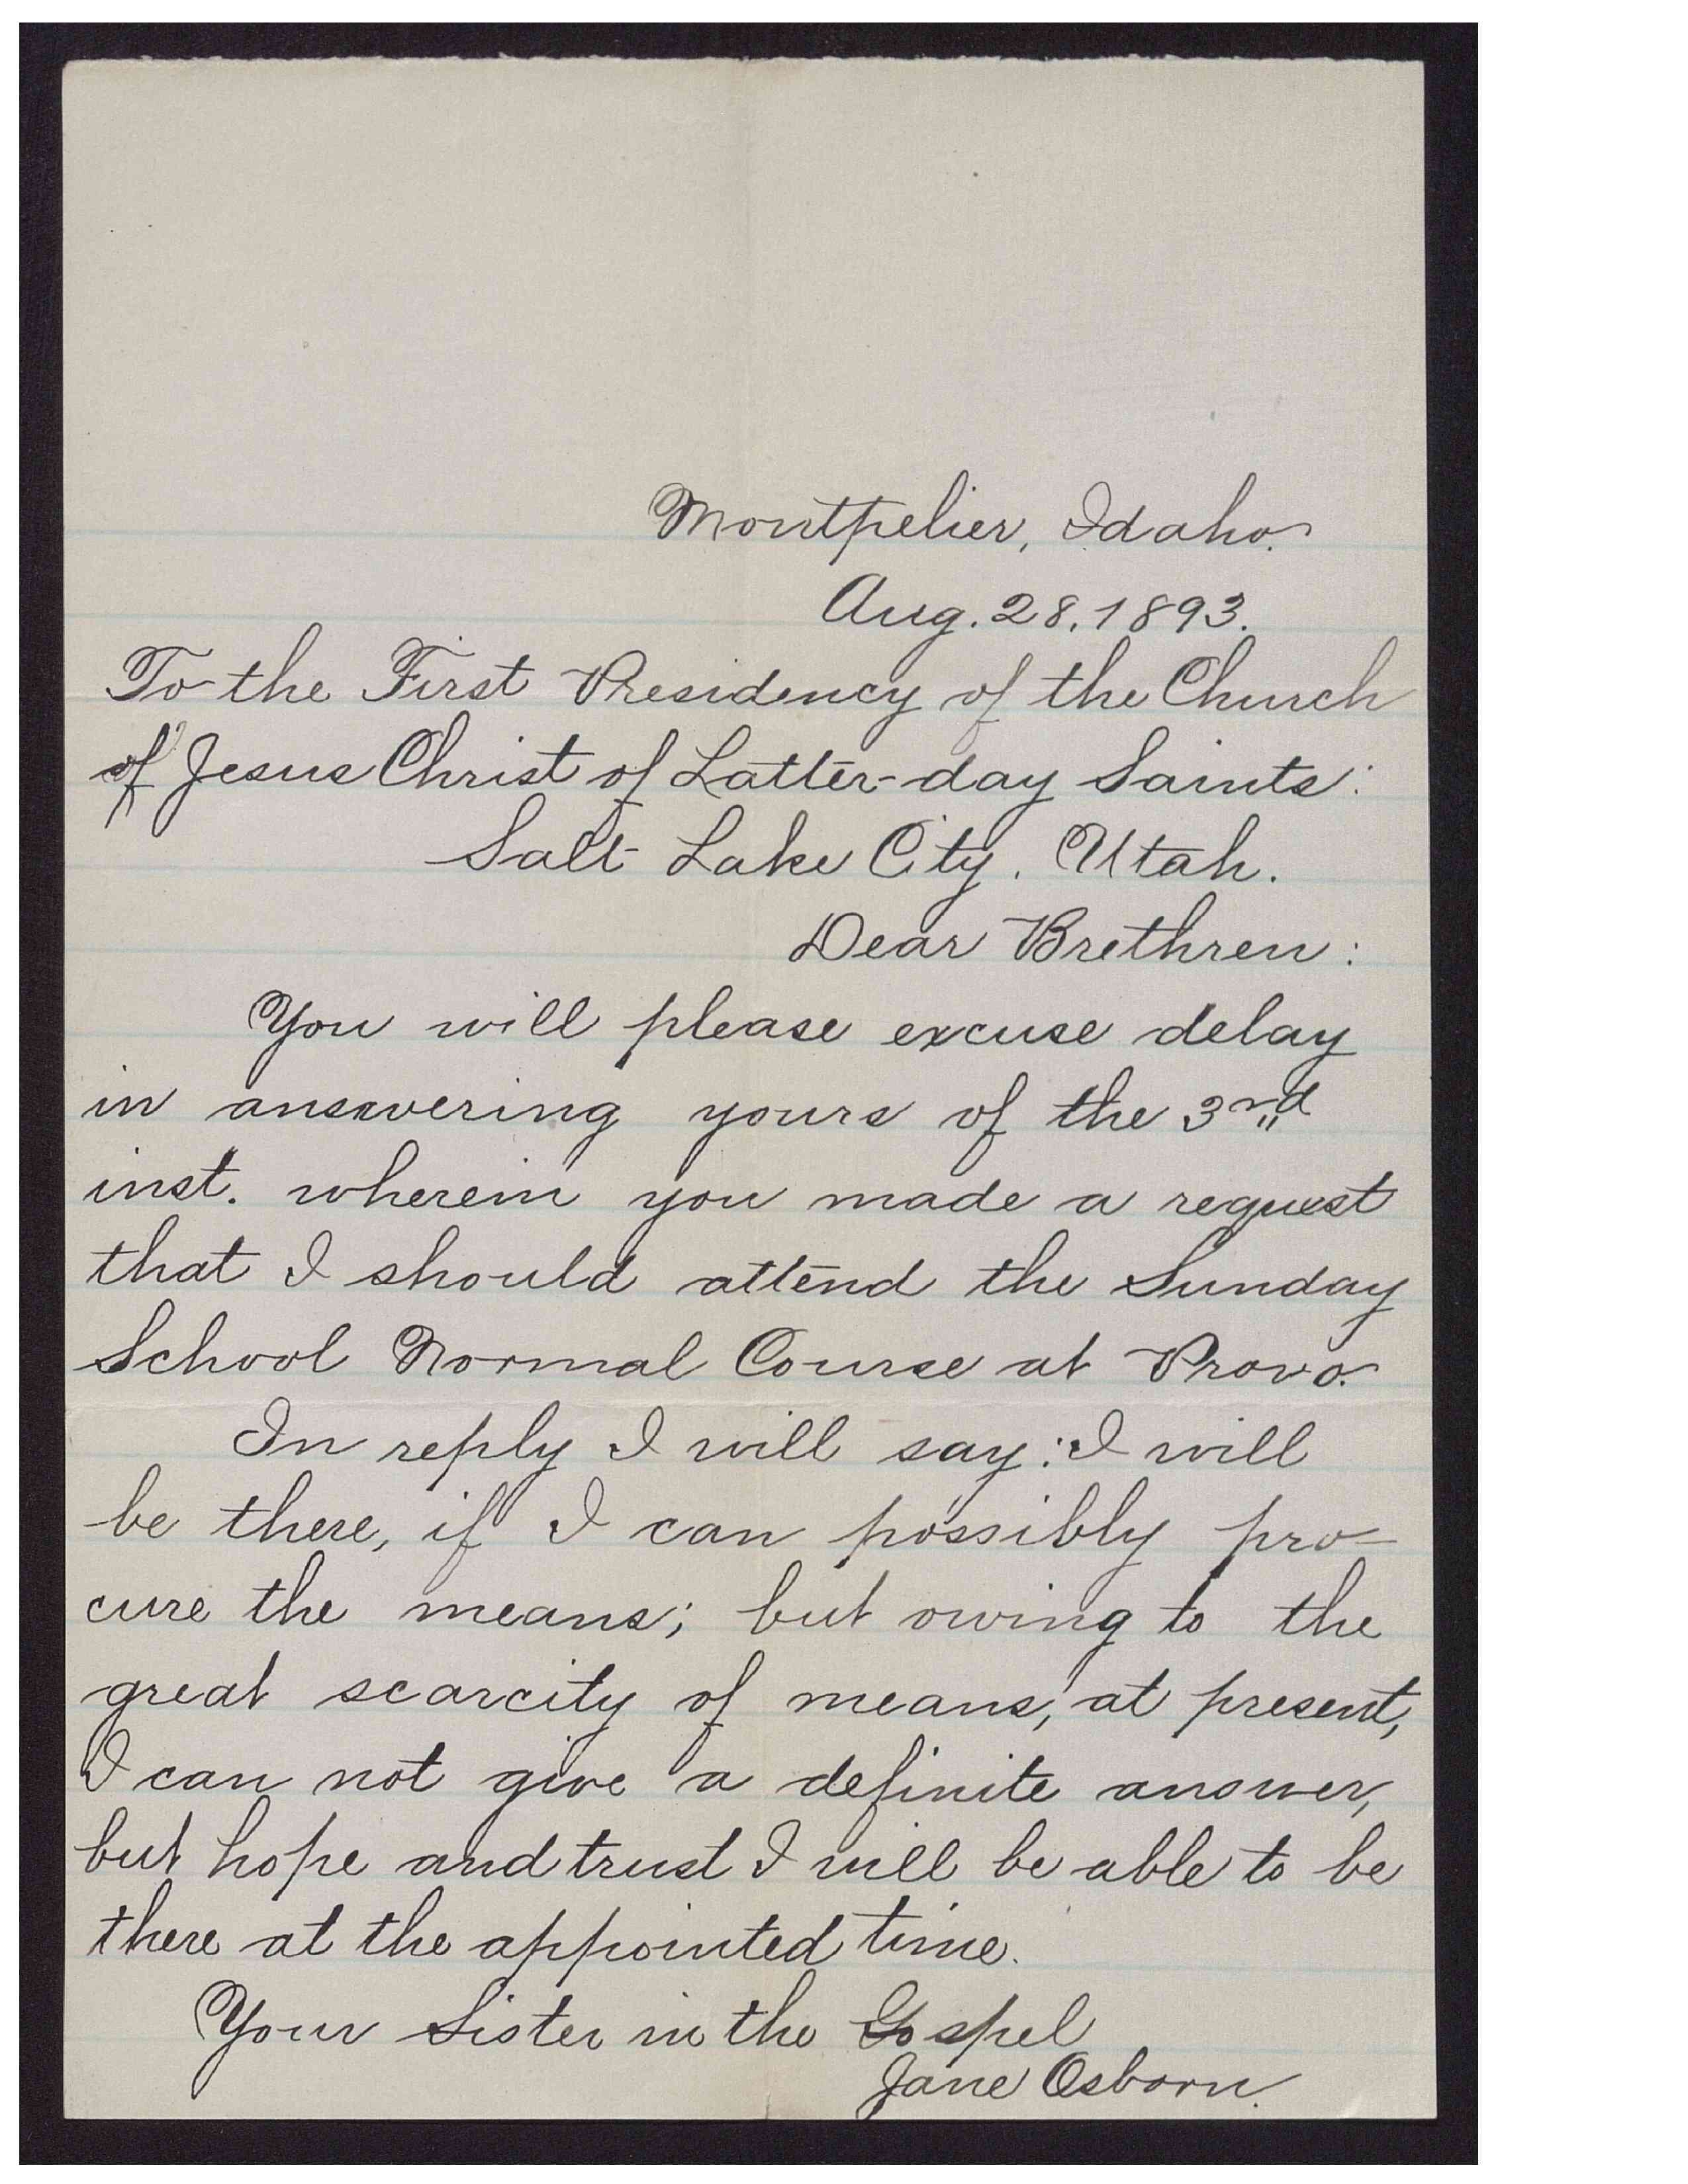 Montpelier, Idaho.
Aug. 28. 1893.
To the First Presidency of the Church
of Jesus Christ of Latter-day Saints:
Salt Lake City. Utah.
Dear Brethren:
You will please excuse delay
in answering yours of the 3rd
inst. wherein you made a request
that I should attend the Sunday
School Normal Course at Provo.
In reply I will say: I will
be there, if I can possibly pro-
cure the means; but owing to the
great scarcity of means, at present,
I can not give a definite answer,
but hope and trust I will be able to be
there at the appointed time.
Your Sister in the Gospel
Jane Osborn.